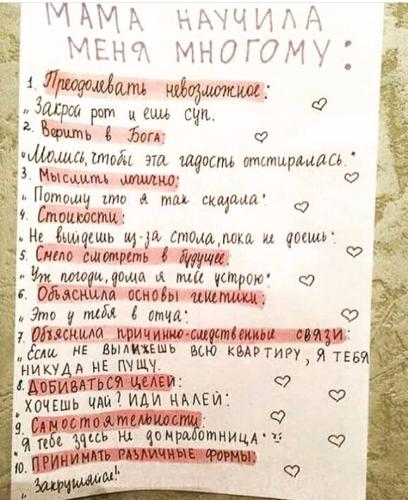 МАМА НАУЧИЛА
МЕНЯ МНОГОМУ:
1. Преодолевать невозможное:
„Закрой рот и ешь суп.
2. Верить в Бога:
„Молись, чтобы эта гадость отстиралась."
3. Мыслить логично:
„Потому что я так сказала".
4. Стойкости:
„Не выйдешь из-за стола, пока не доешь".
5. Смело смотреть в будущее:
„Уж погоди, дома я тебе устрою".
6. Объяснила основы генетики:
„Это у тебя в отца".
7. Объяснила причинно-следственные связи:
„Если не вылижешь всю квартиру, я тебя
никуда не пущу.
8. Добиваться целей:
„Хочешь чай? Иди налей".
9. Самостоятельности:
„Я тебе здесь не домработница".
10. Принимать различные формы:
„Закругляйся!"